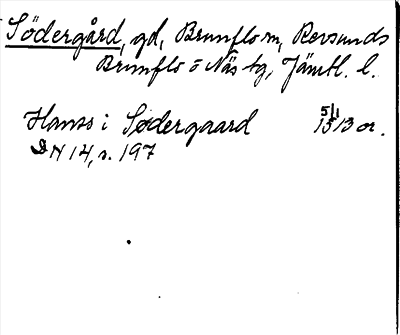 Södergård, gd, Brunflo sn, Revsunds
Brunflo o Näs tg, Jämtl. l.
Hanss i Södergaard 5/1 1513 or.
DN 14, s. 197